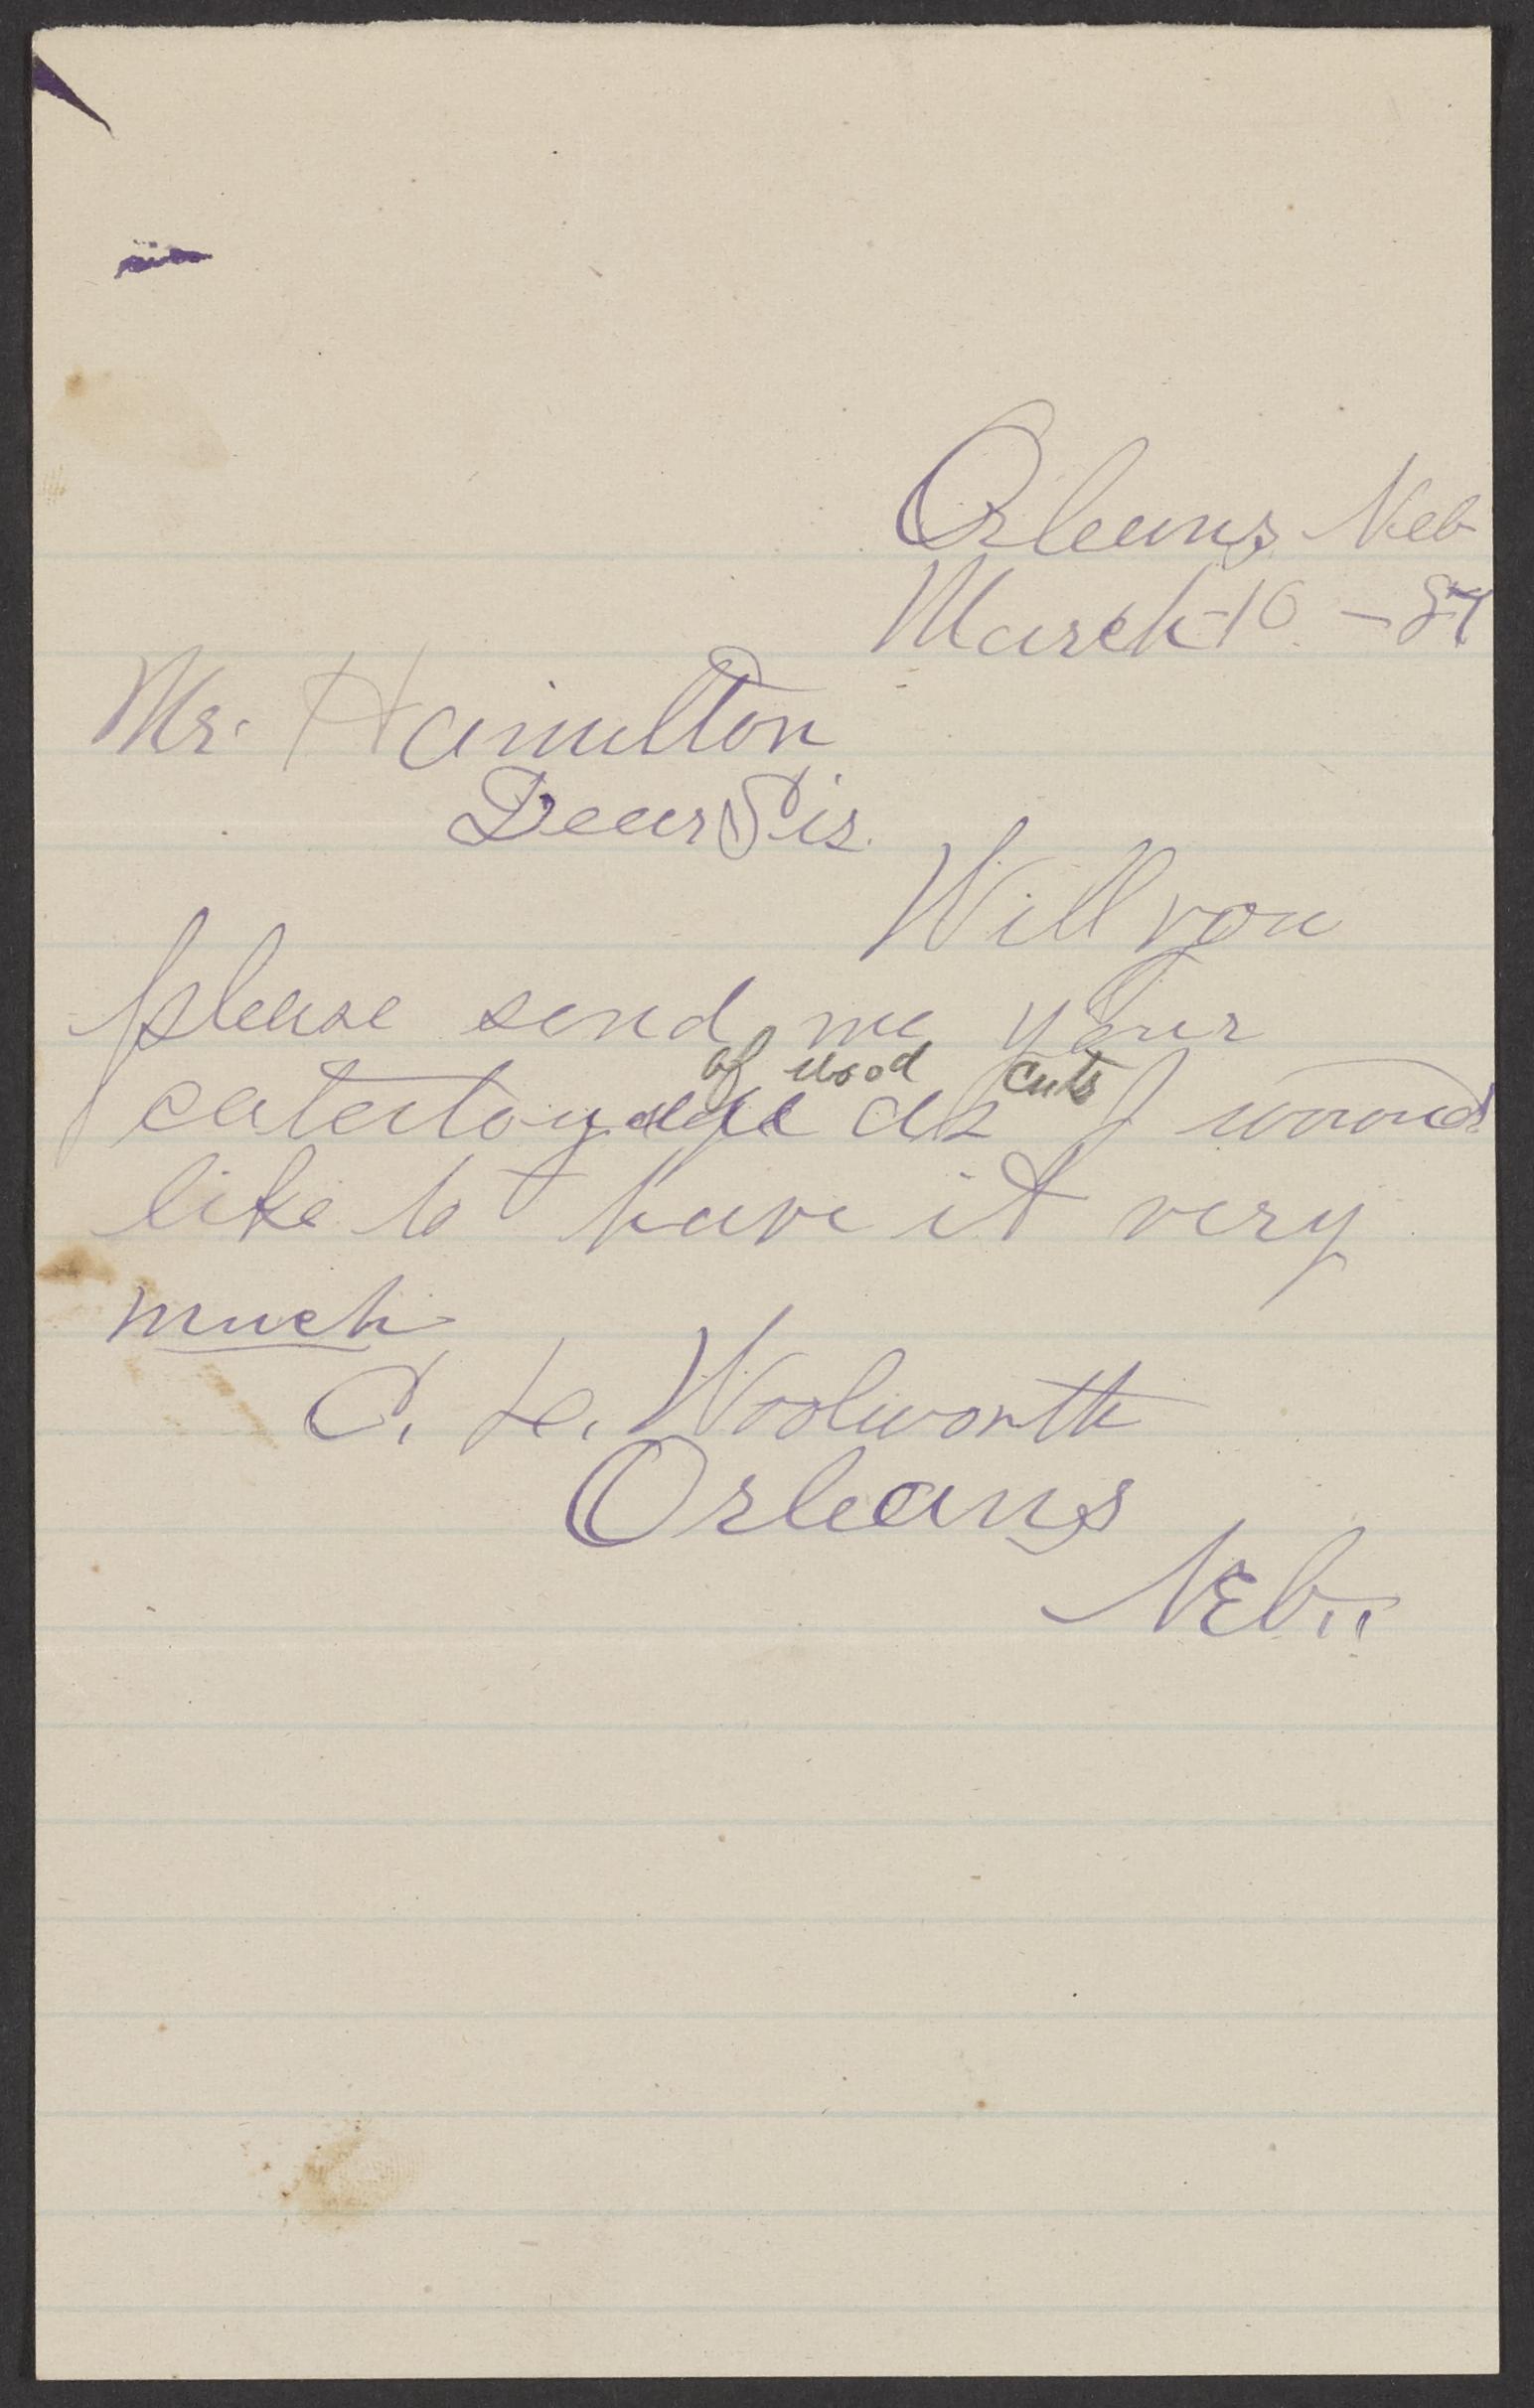 Orleans Neb
March 16 - 87
Mr. Hamilton
Dear Sir.
Will you
please send me your
of wood cuts
as I would
like to have it very
much
Woolworth
Orleans
NEb..